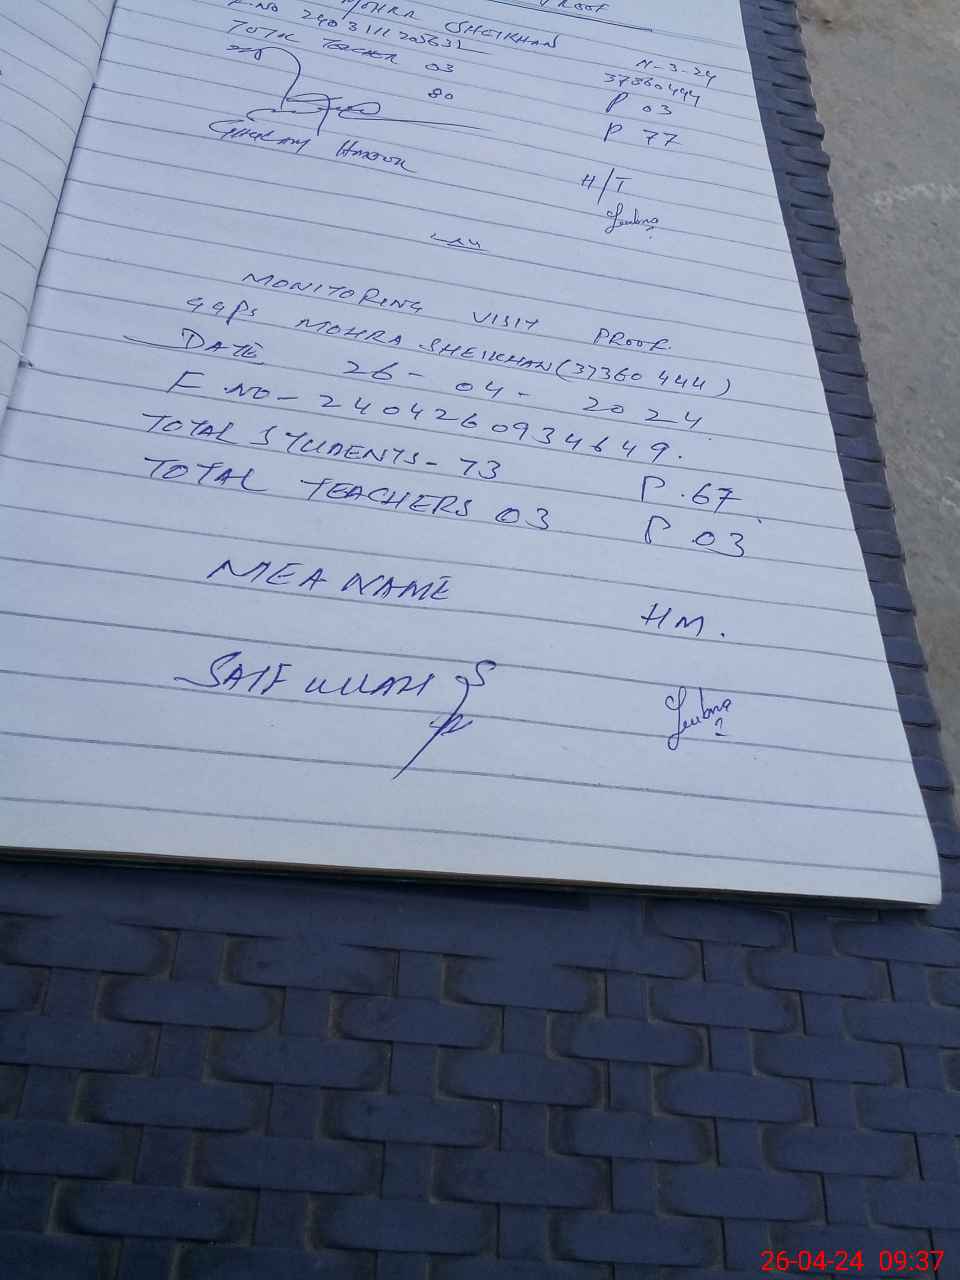 PROOF
MOHRA SHEIKHAN
F.NO 2403111205632 11-3-24
TOTAL TEACHER 03 37360444
P 03
80 P 77
GHULAM
H/T
Lubna
MONITORING VISIT PROOF.
GGPS MOHRA SHEIKHAN (37360444)
DATE 26-04-2024
F.NO-2404260934649.
TOTAL STUDENTS-73 P.67
TOTAL TEACHERS 03 P 03
MEA NAME HM.
SAIF ULLAH
Lubna
26-04-24 09:37